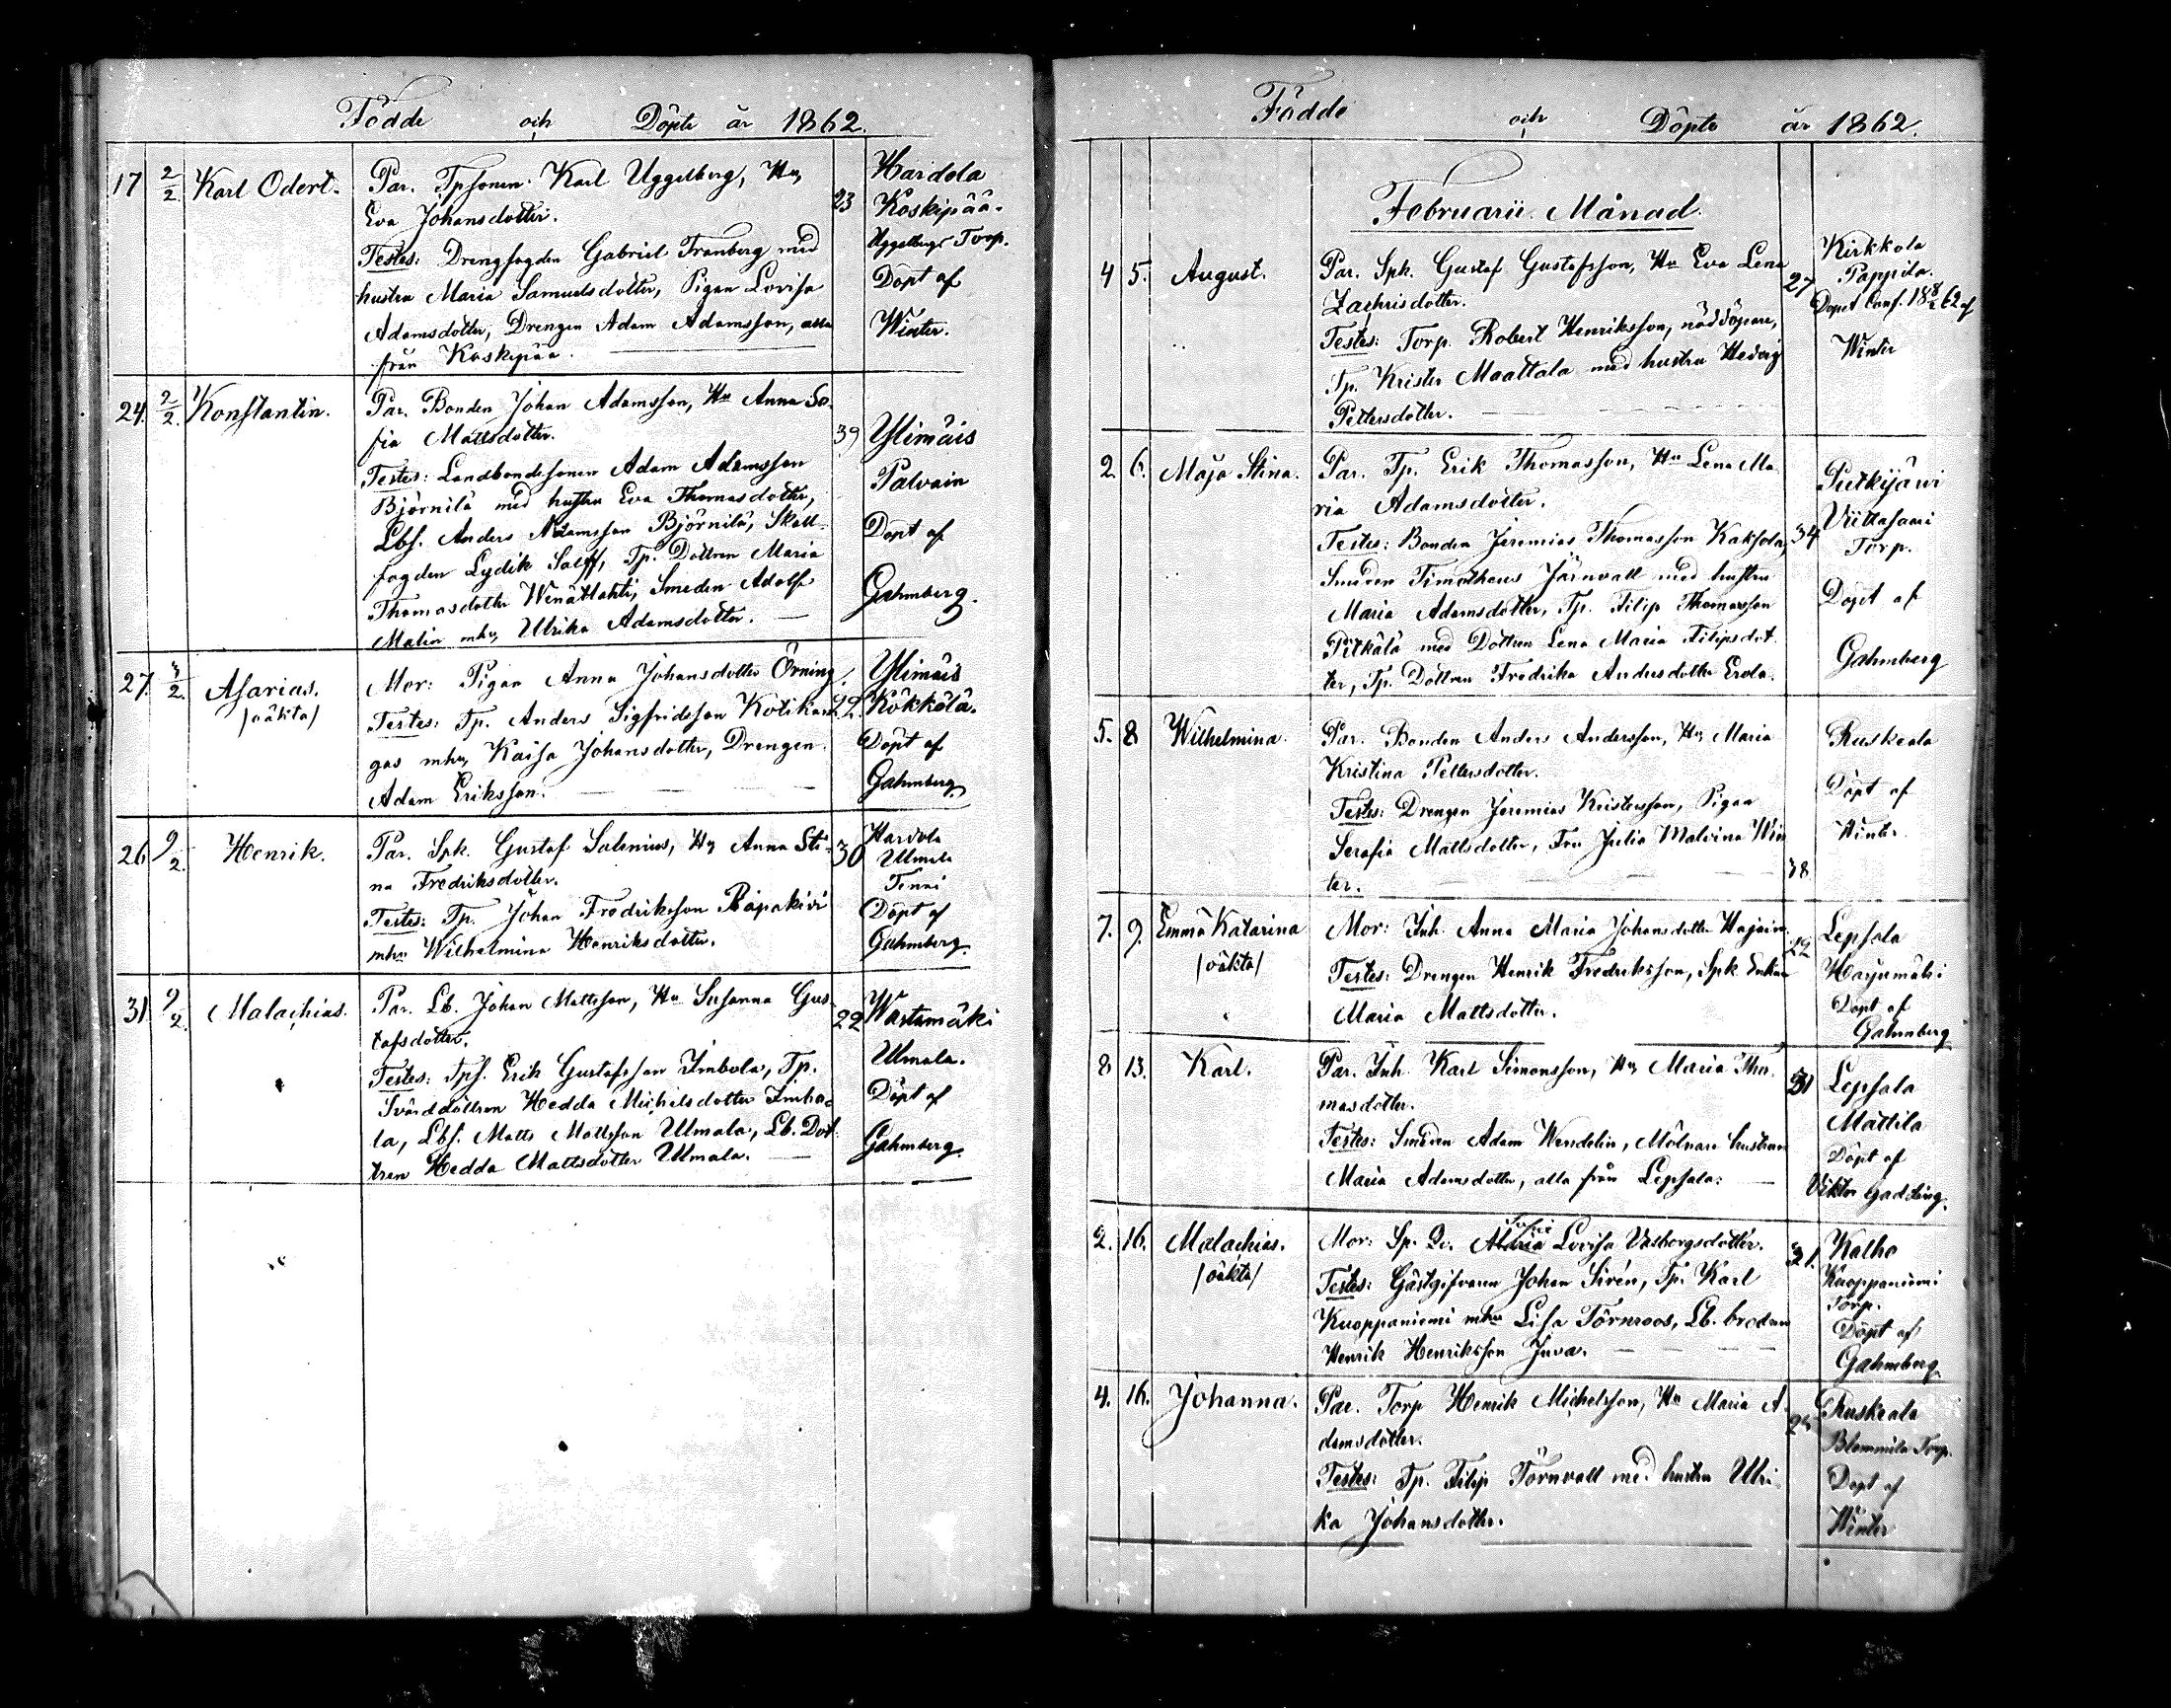 Födde och Döpte år 1862.
17 2/2 Karl Odert. Par. Tpsonen Karl Uggelberg, Hu
Eva Johansdotter. 23
Testes: Drengfogden Gabriel Tranberg med
hustru Maria Samuelsdotter, Pigan Lovisa
Adamsdotter, Drengen Adam Adamsson, alla
från Koskipää.
Hardola
Koskipää.
Uggelbergs Torp.
Döpt af
Winter.
24. 2/2. Konstantin. Par. Bonden Johan Adamsson, Hu Anna So-
fia Mattsdotter. 39
Testes: Landbondesonen Adam Adamsson
Björnilä med hustru Eva Thomasdotter,
Lbs. Anders Adamsson Björnilä, Skall-
fogden Lydik Salff, Tp. Dottren Maria
Thomasdotter Winättahti, Smeden Adolf
Malin mhu Ulrika Adamsdotter.
Ylimäis
Palvain
Döpt af
Gahmberg.
27. /2. Asarias. Mor: Pigan Anna Johansdotter Örning.
/oäkta/ Testes: Tp. Anders Sigfridsson Kotikan- 22.
gas mhu Kaisa Johansdotter, Drengen
Adam Eriksson.
Ylimäis
Kökkölä.
Döpt af
Gahmberg
26 9/2. Henrik. Par. Spk. Gustaf Salenius, Hu Anna Sti- 30
na Fredriksdotter.
Testes: Tp. Johan Fredriksson Rapakivi
mhu Wilhelmina Henriksdotter.
Hardola
Ulmala
Döpt af
Gahmberg.
31 9/2. Malachias. Par. Lb. Johan Mattsson, Hu Susanna Gus-
tafsdotter. 22
Testes: Tps. Erik Gustafsson Imbola, Tp.
Svärddottren Hedda Michelsdotter Imbo-
la, Lbs. Matts Mattsson Ulmala, Lb. Dot-
tren Hedda Mattsdotter Ulmala.
Wastamäki
Ulmala.
Döpt af
Gahmberg.
Födde och Döpte år 1862.
Februarii Månad.
4 5. August. Par. Spk. Gustaf Gustafsson, Hu Eva Lena
Zachrisdotter. 27
Testes: Torp. Robert Henriksson, nöddöpare,
Tp. Krister Maattala med hustru Hedvig
Pettersdotter.
Kirkkola
Pappila.
Dopet Conf. 18 8/2 62 af
Winter
2. 6. Maja Stina. Par. Tp. Erik Thomasson, Hu Lena Ma-
ria Adamsdotter.
Testes: Bonden Jeremias Thomasson Kaksola, 34
Smeden Timotheus Järnvall med hustru
Maria Adamsdotter, Tp. Filip Thomasson
Pitkälä med Dottren Lena Maria Filipsdot-
ter, Tp. Dottren Fredrika Andersdotter Erola.
Putkijärvi
Viittasaari
Torp.
Döpt af
Gahmberg
5. 8 Wilhelmina. Par. Bonden Anders Andersson, Hu Maria
Kristina Pettersdotter.
Testes: Drengen Jeremias Kristersson, Pigan
Serafia Mattsdotter, Fru Julia Malvina Win-
ter. 38
Ruskeala
Döpt af
Winter
7. 9. Emma Katarina Mor: Inh. Anna Maria Johansdotter 22
/oäkta/ Testes: Drengen Henrik Fredriksson, Spk Enkan
Maria Mattsdotter.
Lepsala
Harjumäki
Döpt af
Gahmberg
8 13. Karl. Par. Inh. Karl Simonsson, Hu Maria Tho- 31
masdotter.
Testes: Smeden Adam Wendelin, Mölnare hustrun
Maria Adamsdotter, alla från Lepsala.
Lepsala
Mattila
Döpt af
Viktor
2. 16. Malachias. Mor: Sp. Lovisa
/oäkta/ Testes: Gästgifvaren Johan Sirén, Tp. Karl
Kuoppaniemi mhu Lisa Törnroos, Lb. brodren
Henrik Henriksson Juva.
Kalho
Kuoppaniemi
Torp.
Döpt af
Gahmberg
4. 16. Johanna. Par. Torp Henrik Michelsson, Hu Maria A-
damsdotter.
Testes: Tp. Filip Törnvall med hustru Ulri-
ka Johansdotter.
Ruskeala
Blommila Torp.
Döpt af
Winter